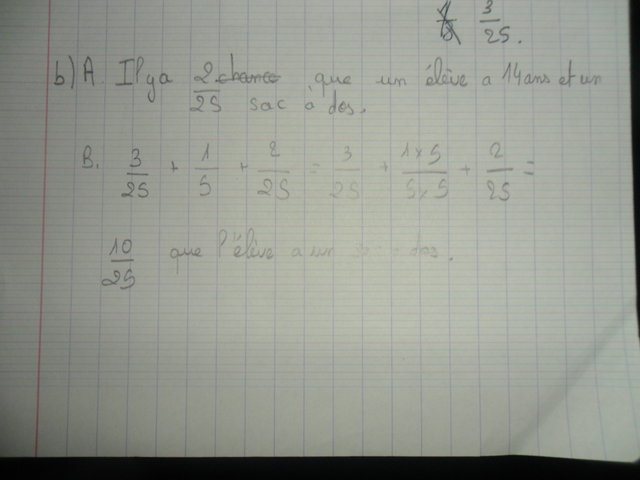 3/25.
b) A. Il y a 2/25 chance que un élève a 14 ans et un
sac à dos.
B. 3/25 + 1/5 + 2/25 = 3/25 + 1×5/5×5 + 2/25 =
10/25 que l'élève a un sac à dos.